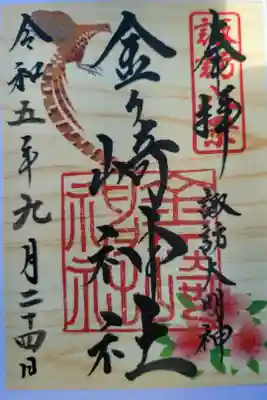 奉拝
諏訪大明神
金ヶ崎神社
令和五年九月二十四日